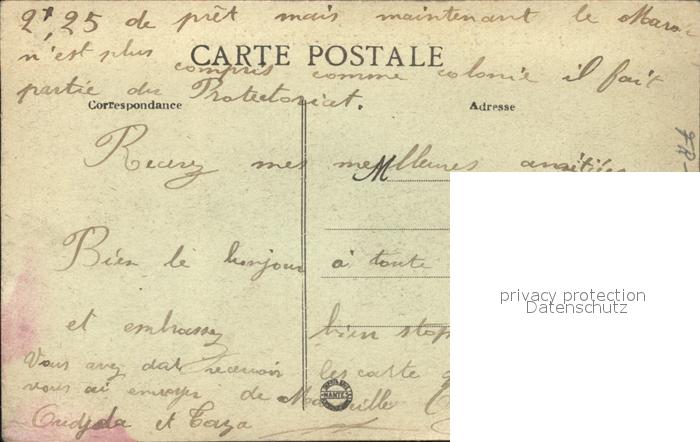 2f,25 de prêt mais maintenant le Maroc
n'est plus compris comme colonie il fait
partie du Protectoriat.
CARTE POSTALE
Correspondance
Adresse
Recevez mes meilleures amitiées
M
Bien le bonjour à toute
et embrassez bien
Vous avez dat recevoir les carte
vous ai envoyer de Marseille
Oudjda et Taza
NANTES
privacy protection
Datenschutz